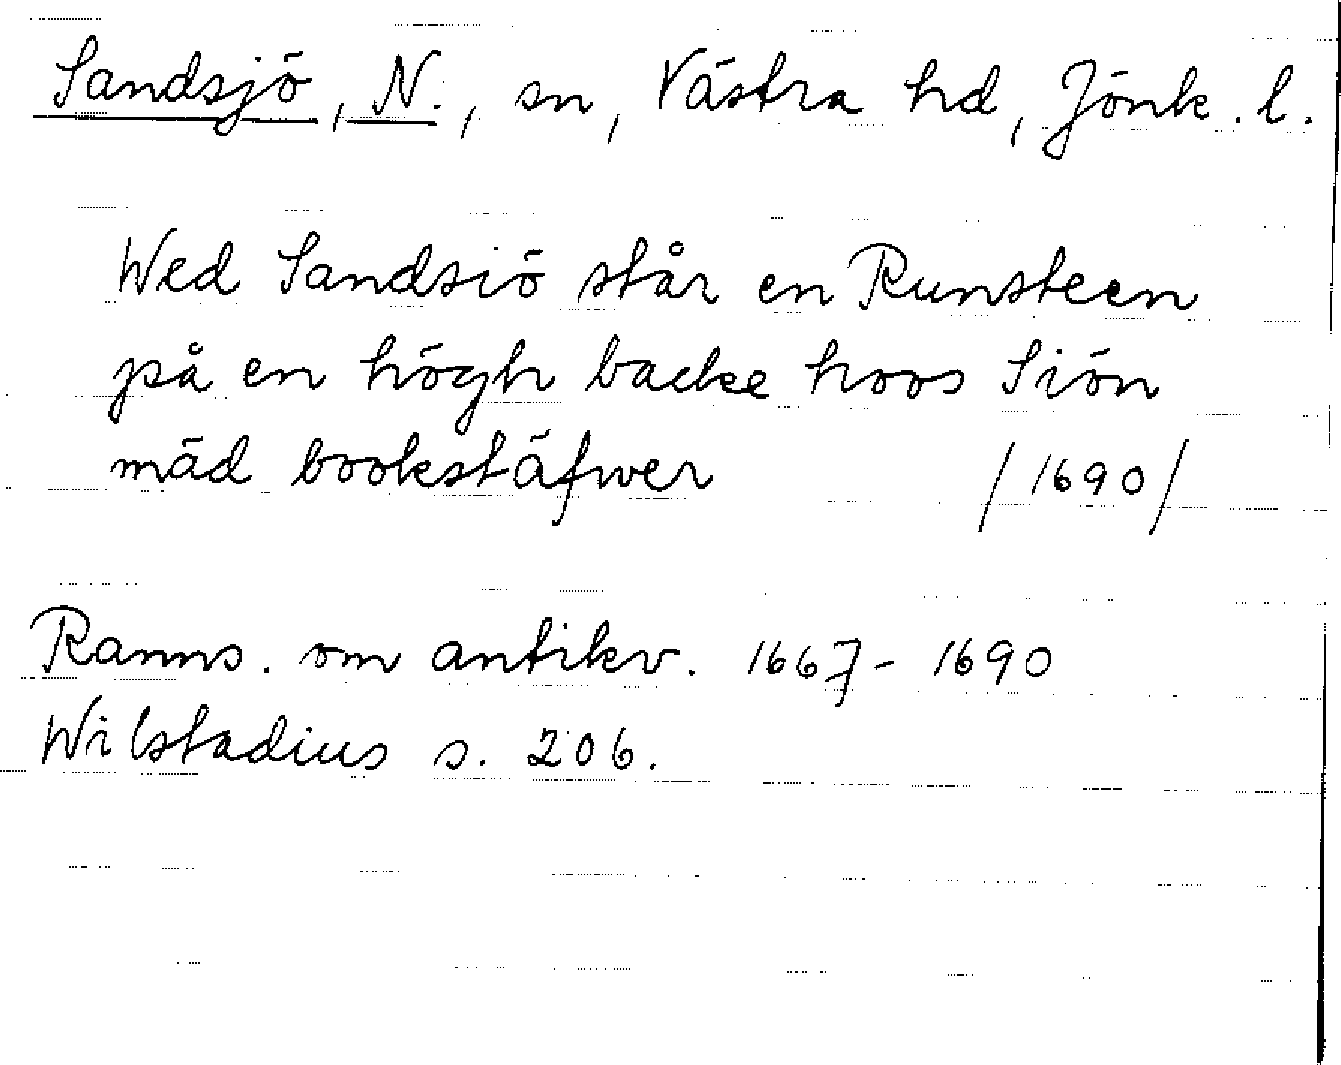 Sandsjö, N., sn, Västra hd, Jönk. l.
Wed Sandsiö står en Runsteen
på en högh backe hoos Siön
mäd bookstäfwer /1690/
Ranns. om antikv. 1667-1690
Wilstadius s. 206.